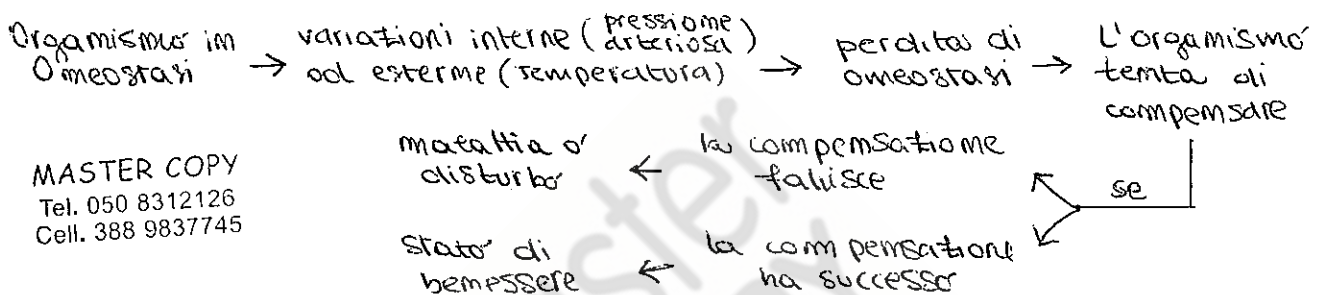 Organismo in
Omeostasi
→ variazioni interne (pressione arteriosa)
od esterne (temperatura)
→ perdita di
omeostasi
→ L'organismo
tenta di
compensare
se
la compensazione
fallisce
← malattia o
disturbo
la compensazione
ha successo
← stato di
benessere
MASTER COPY
Tel. 050 8312126
Cell. 388 9837745